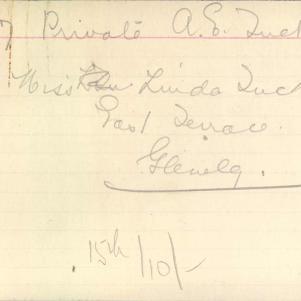 7 Private A.E. Tuck
Miss Linda Tuck
East Terrace.
Glenelg.
15th/10/-